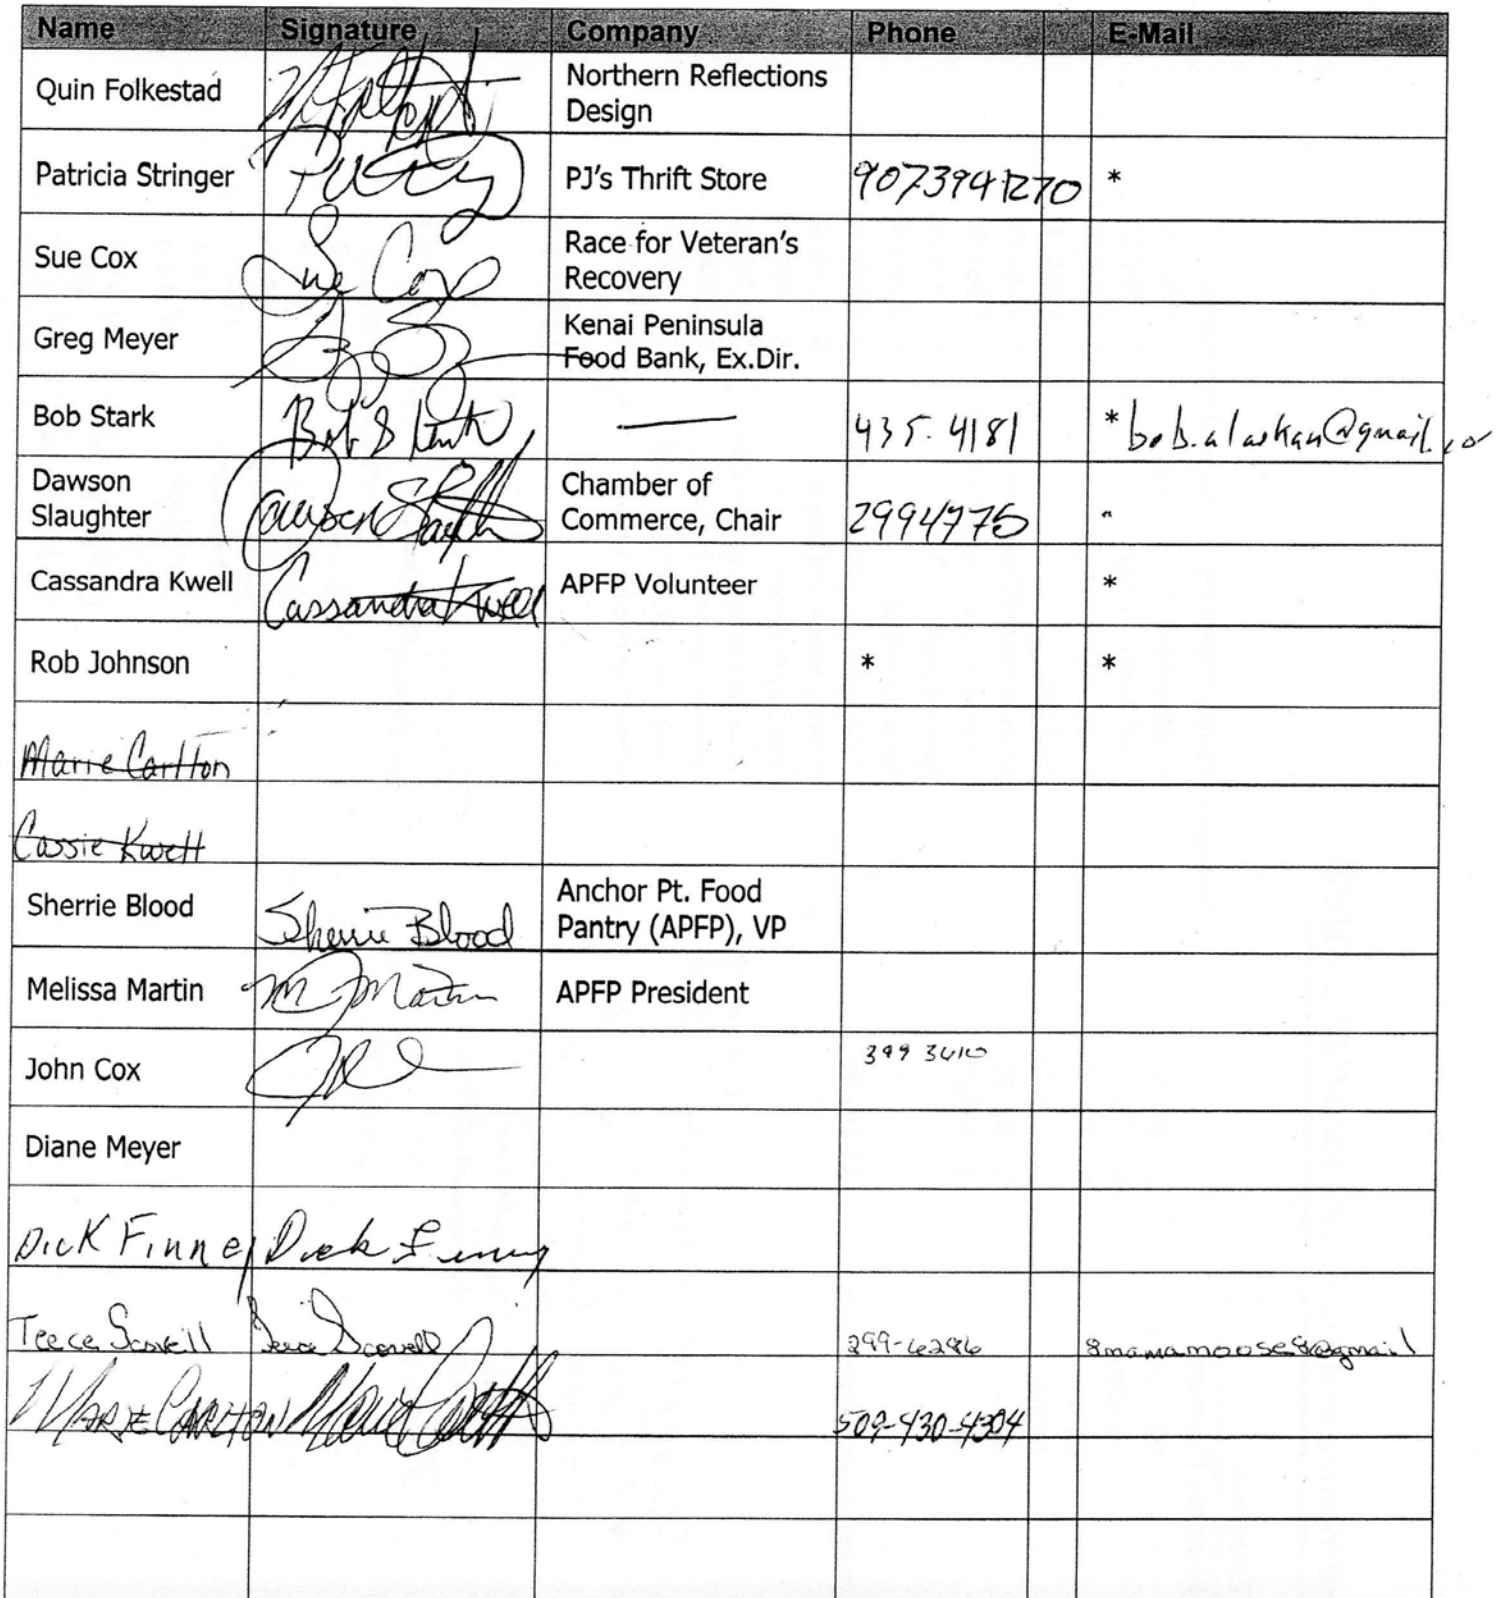 Name Signature Company Phone E-Mail
Quin Folkestad Northern Reflections
Design
Patricia Stringer Patty PJ's Thrift Store 9073941270 *
Sue Cox Sue Cox Race for Veteran's
Recovery
Greg Meyer Kenai Peninsula
Food Bank, Ex.Dir.
Bob Stark Bob Stark — 435.4181 * bob.alaskan@gmail.co
Dawson
Slaughter Dawson Chamber of
Commerce, Chair 2994775
Cassandra Kwell Cassandra Kwell APFP Volunteer *
Rob Johnson * *
Marie Carlton
Cassie Kwell
Sherrie Blood Sherrie Blood Anchor Pt. Food
Pantry (APFP), VP
Melissa Martin M Martin APFP President
John Cox 399 3610
Diane Meyer
Dick Finney Dick Finney
Teece Scovell Teece Scovell 299-6286 8mamamoose8@gmail
MARIE CARLTON Marie Carlton 509-430-4304